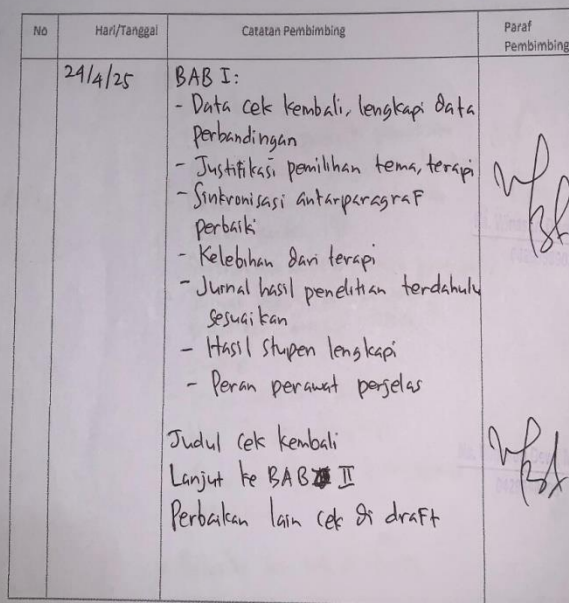 No
Hari/Tanggal
Catatan Pembimbing
Paraf
Pembimbing
24/4/25
BAB I:
- Data cek kembali, lengkapi data
perbandingan
- Justifikasi pemilihan tema, terapi
- Sinkronisasi antarparagraf
perbaiki
- Kelebihan dari terapi
- Jurnal hasil penelitian terdahulu
sesuaikan
- Hasil stupen lengkapi
- Peran perawat perjelas
Judul cek kembali
Lanjut ke BAB II
Perbaikan lain cek di draft